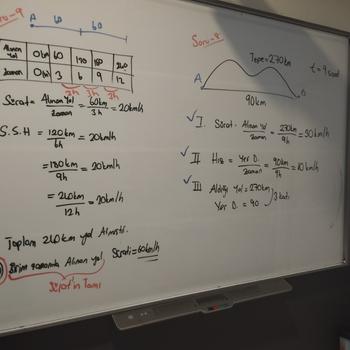 Soru-9
A 60 60
Alınan Yol | 0km | 60 | 120 | 180 | 240
Zaman | 0h | 3 | 6 | 9 | 12
3h 3h 3h
Sürat = Alınan Yol / Zaman = 60km / 3h = 20km/h
S.S.H = 120km / 6h = 20km/h
= 180km / 9h = 20km/h
= 240km / 12h = 20km/h
Toplam 240km yol Almıştır.
Birim zamanda Alınan yol, Sürati = 60km/h
Sürat'in Tanımı
Soru-8
Tepe = 270km t = 9 saat
A
90km
✓ I. Sürat = Alınan Yol / Zaman = 270km / 9h = 30km/h
✓ II Hız = Yer D. / Zaman = 90km / 9h = 10km/h
✓ III Aldığı Yol = 270km
Yer D. = 90
3 katı